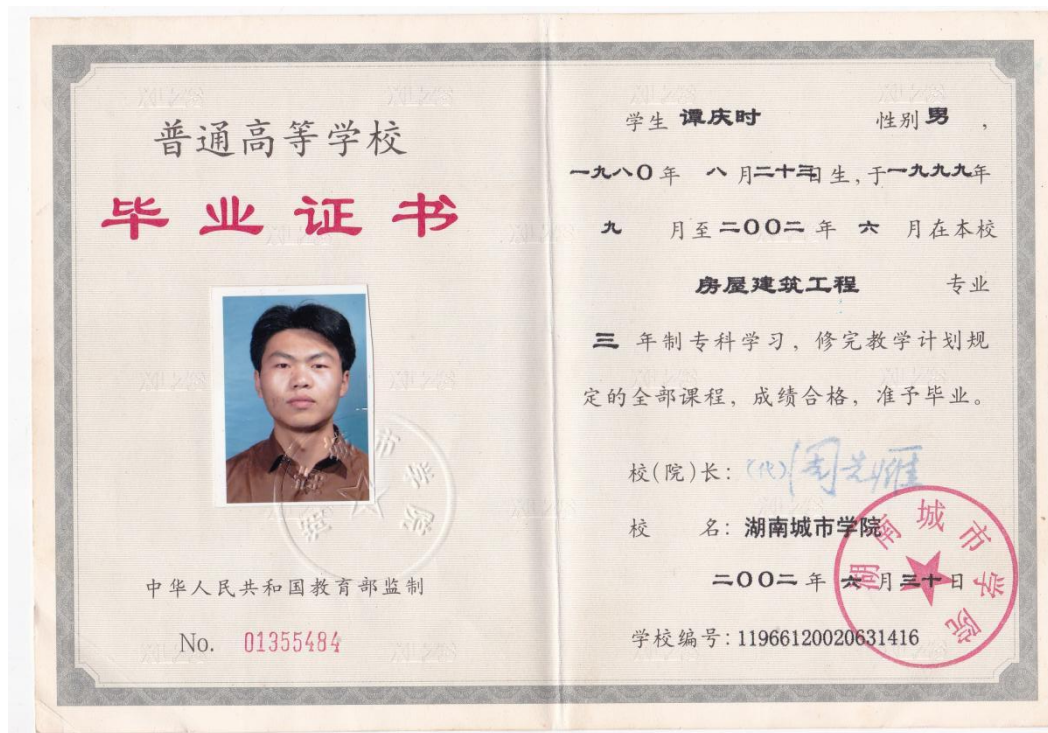 普通高等学校
毕业证书
中华人民共和国教育部监制
No. 01355484
学生 谭庆时 性别 男 ,
一九八〇年 八 月二十三日生,于一九九九年
九 月至二〇〇二年 六 月在本校
房屋建筑工程 专业
三 年制专科学习, 修完教学计划规
定的全部课程, 成绩合格, 准予毕业。
校(院)长: (代)
校 名: 湖南城市学院
二〇〇二年 六月三十日
学校编号: 11966120020631416
湖南城市学院